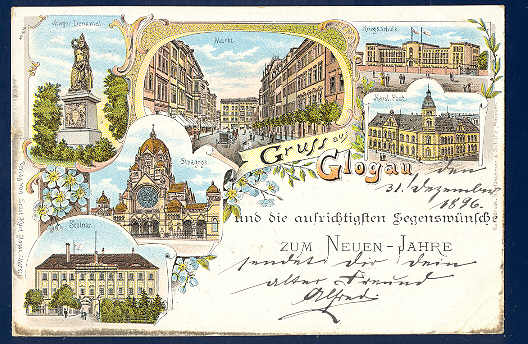 Krieger Denkmal.
Markt.
Kriegsschule
Kaiserl. Post.
Synagoge.
Schloss.
Gruss aus
Glogau
den
31. Dezember
1896.
und die aufrichtigsten Segenswünsche
ZUM NEUEN-JAHRE
sendet dir dein
alter Freund
Alfred